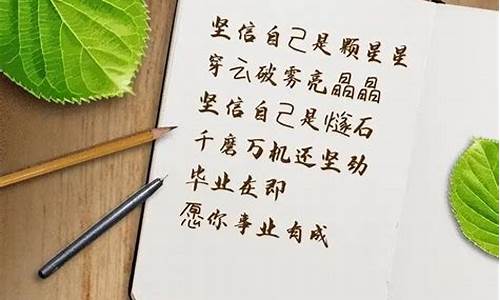 坚信自己是颗星星
穿云破雾亮晶晶
坚信自己是燧石
千磨万机还坚劲
毕业在即
愿你事业有成